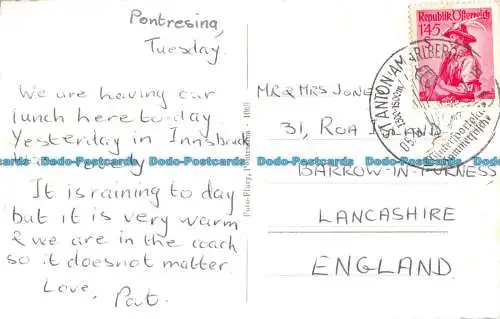 Pontresina,
Tuesday.
We are having our
lunch here to-day
Yesterday in Innsbruck
lovely
It is raining to day
but it is very warm
& we are in the coach
so it does not matter.
Love,
Pat.
Foto-Flury, Pontresina - 1069
Republik Österreich
1.45
ST. ANTON AM ARLBERG
MR & MRS JONE
31, ROA ISLAND
BARROW-IN-FURNESS
LANCASHIRE
ENGLAND.
Dodo-Postcards Dodo-Postcards Dodo-Postcards Dodo-Postcards Dodo-Postcards